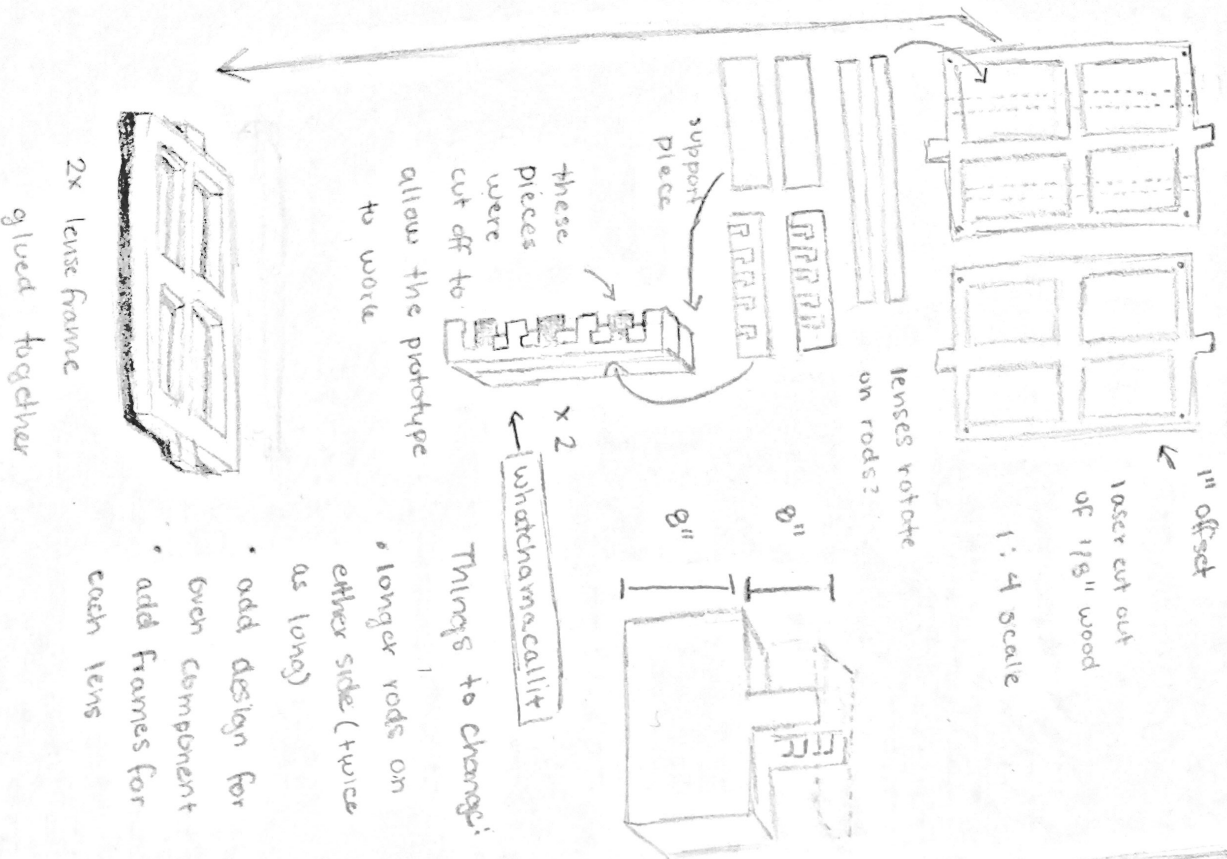 1" offset
laser cut out
of 1/8" wood
1:4 scale
lenses rotate
on rods?
support
piece
these
pieces
were
cut off to
allow the prototype
to work
x 2
whatchamacallit
8"
8"
Things to change:
• longer rods on
either side (twice
as long)
• add design for
oven component
• add frames for
each lens
2x lense frame
glued together